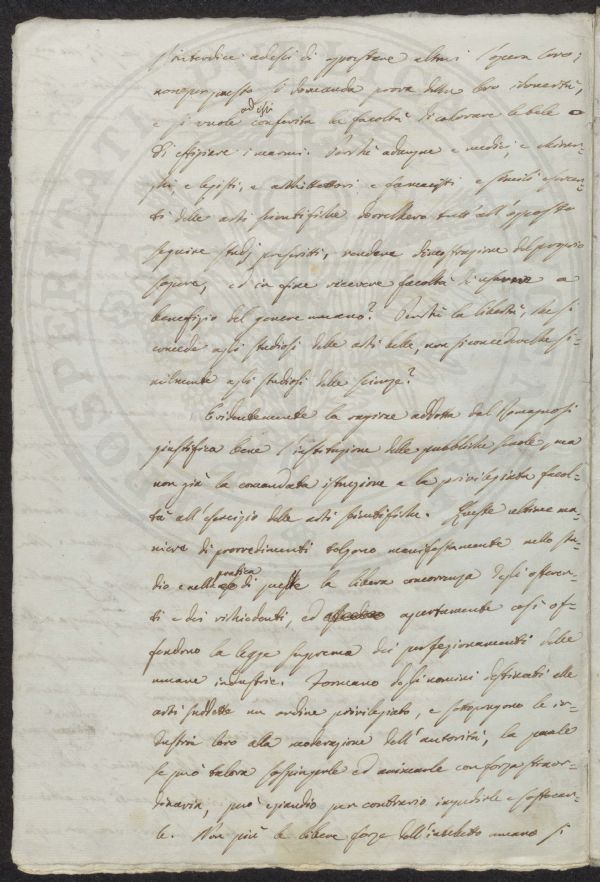 s'interdice ad essi di apprestare altrui l'opera loro;
non per questo si domanda prova della loro idoneità,
ad essi
e si vuole conferita la facoltà di colorare le tele o
di effigiare i marmi. Perchè adunque e medici, e chirur-
ghi, e legisti, e architettori e farmacisti e simili esercen-
ti delle arti scientifiche dovrebbero tutt'all'opposto
seguire studj prescritti, rendere dimostrazione del proprio
sapere, ed in fine ricevere facoltà di usarne a
benefizio del genere umano? Perchè la libertà, che si
concede agli studiosi delle arti belle, non si concederebbe si-
milmente agli studiosi delle scienze?
Evidentemente la ragione addotta dal Romagnosi
giustifica bene l'instituzione delle pubbliche scuole, ma
non già la comandata istruzione e la privilegiata facol-
tà all'esercizio delle arti scientifiche. Queste ultime ma-
niere di provvedimenti tolgono manifestamente nello stu-
pratica
dio e nella di queste la libera concorrenza degli offeren-
ti e dei richiedenti, ed apertamente così of-
fendono la legge suprema dei perfezionamenti delle
umane industrie. Formano degli uomini destinati alle
arti suddette un ordine privilegiato, e sottopongono le in-
dustrie loro alla moderazione dell'autorità, la quale
se può talora sospingerle ed animarle con forza straor-
dinaria, può eziandio per contrario impedirle e soffocar-
le. Non più le libere forze dell'intelletto umano si
PROSPERITATI PUBLICAE